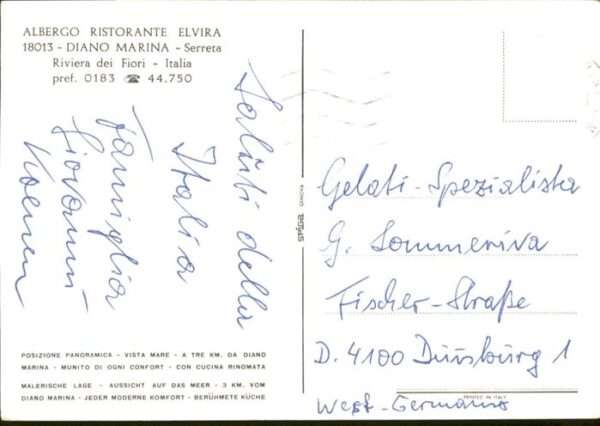 ALBERGO RISTORANTE ELVIRA
18013 - DIANO MARINA - Serreta
Riviera dei Fiori - Italia
pref. 0183 ☎ 44.750
Saluti della
Italia
famiglia
Giovanni
Koenen
POSIZIONE PANORAMICA - VISTA MARE - A TRE KM. DA DIANO
MARINA - MUNITO DI OGNI CONFORT - CON CUCINA RINOMATA
MALERISCHE LAGE - AUSSICHT AUF DAS MEER - 3 KM. VOM
DIANO MARINA - JEDER MODERNE KOMFORT - BERÜHMETE KÜCHE
GENOVA
Gelati-Spezialista
G. Sommeriva
Fischer-Straße
D. 4100 Duisburg 1
West-Germania
PRINTED IN ITALY